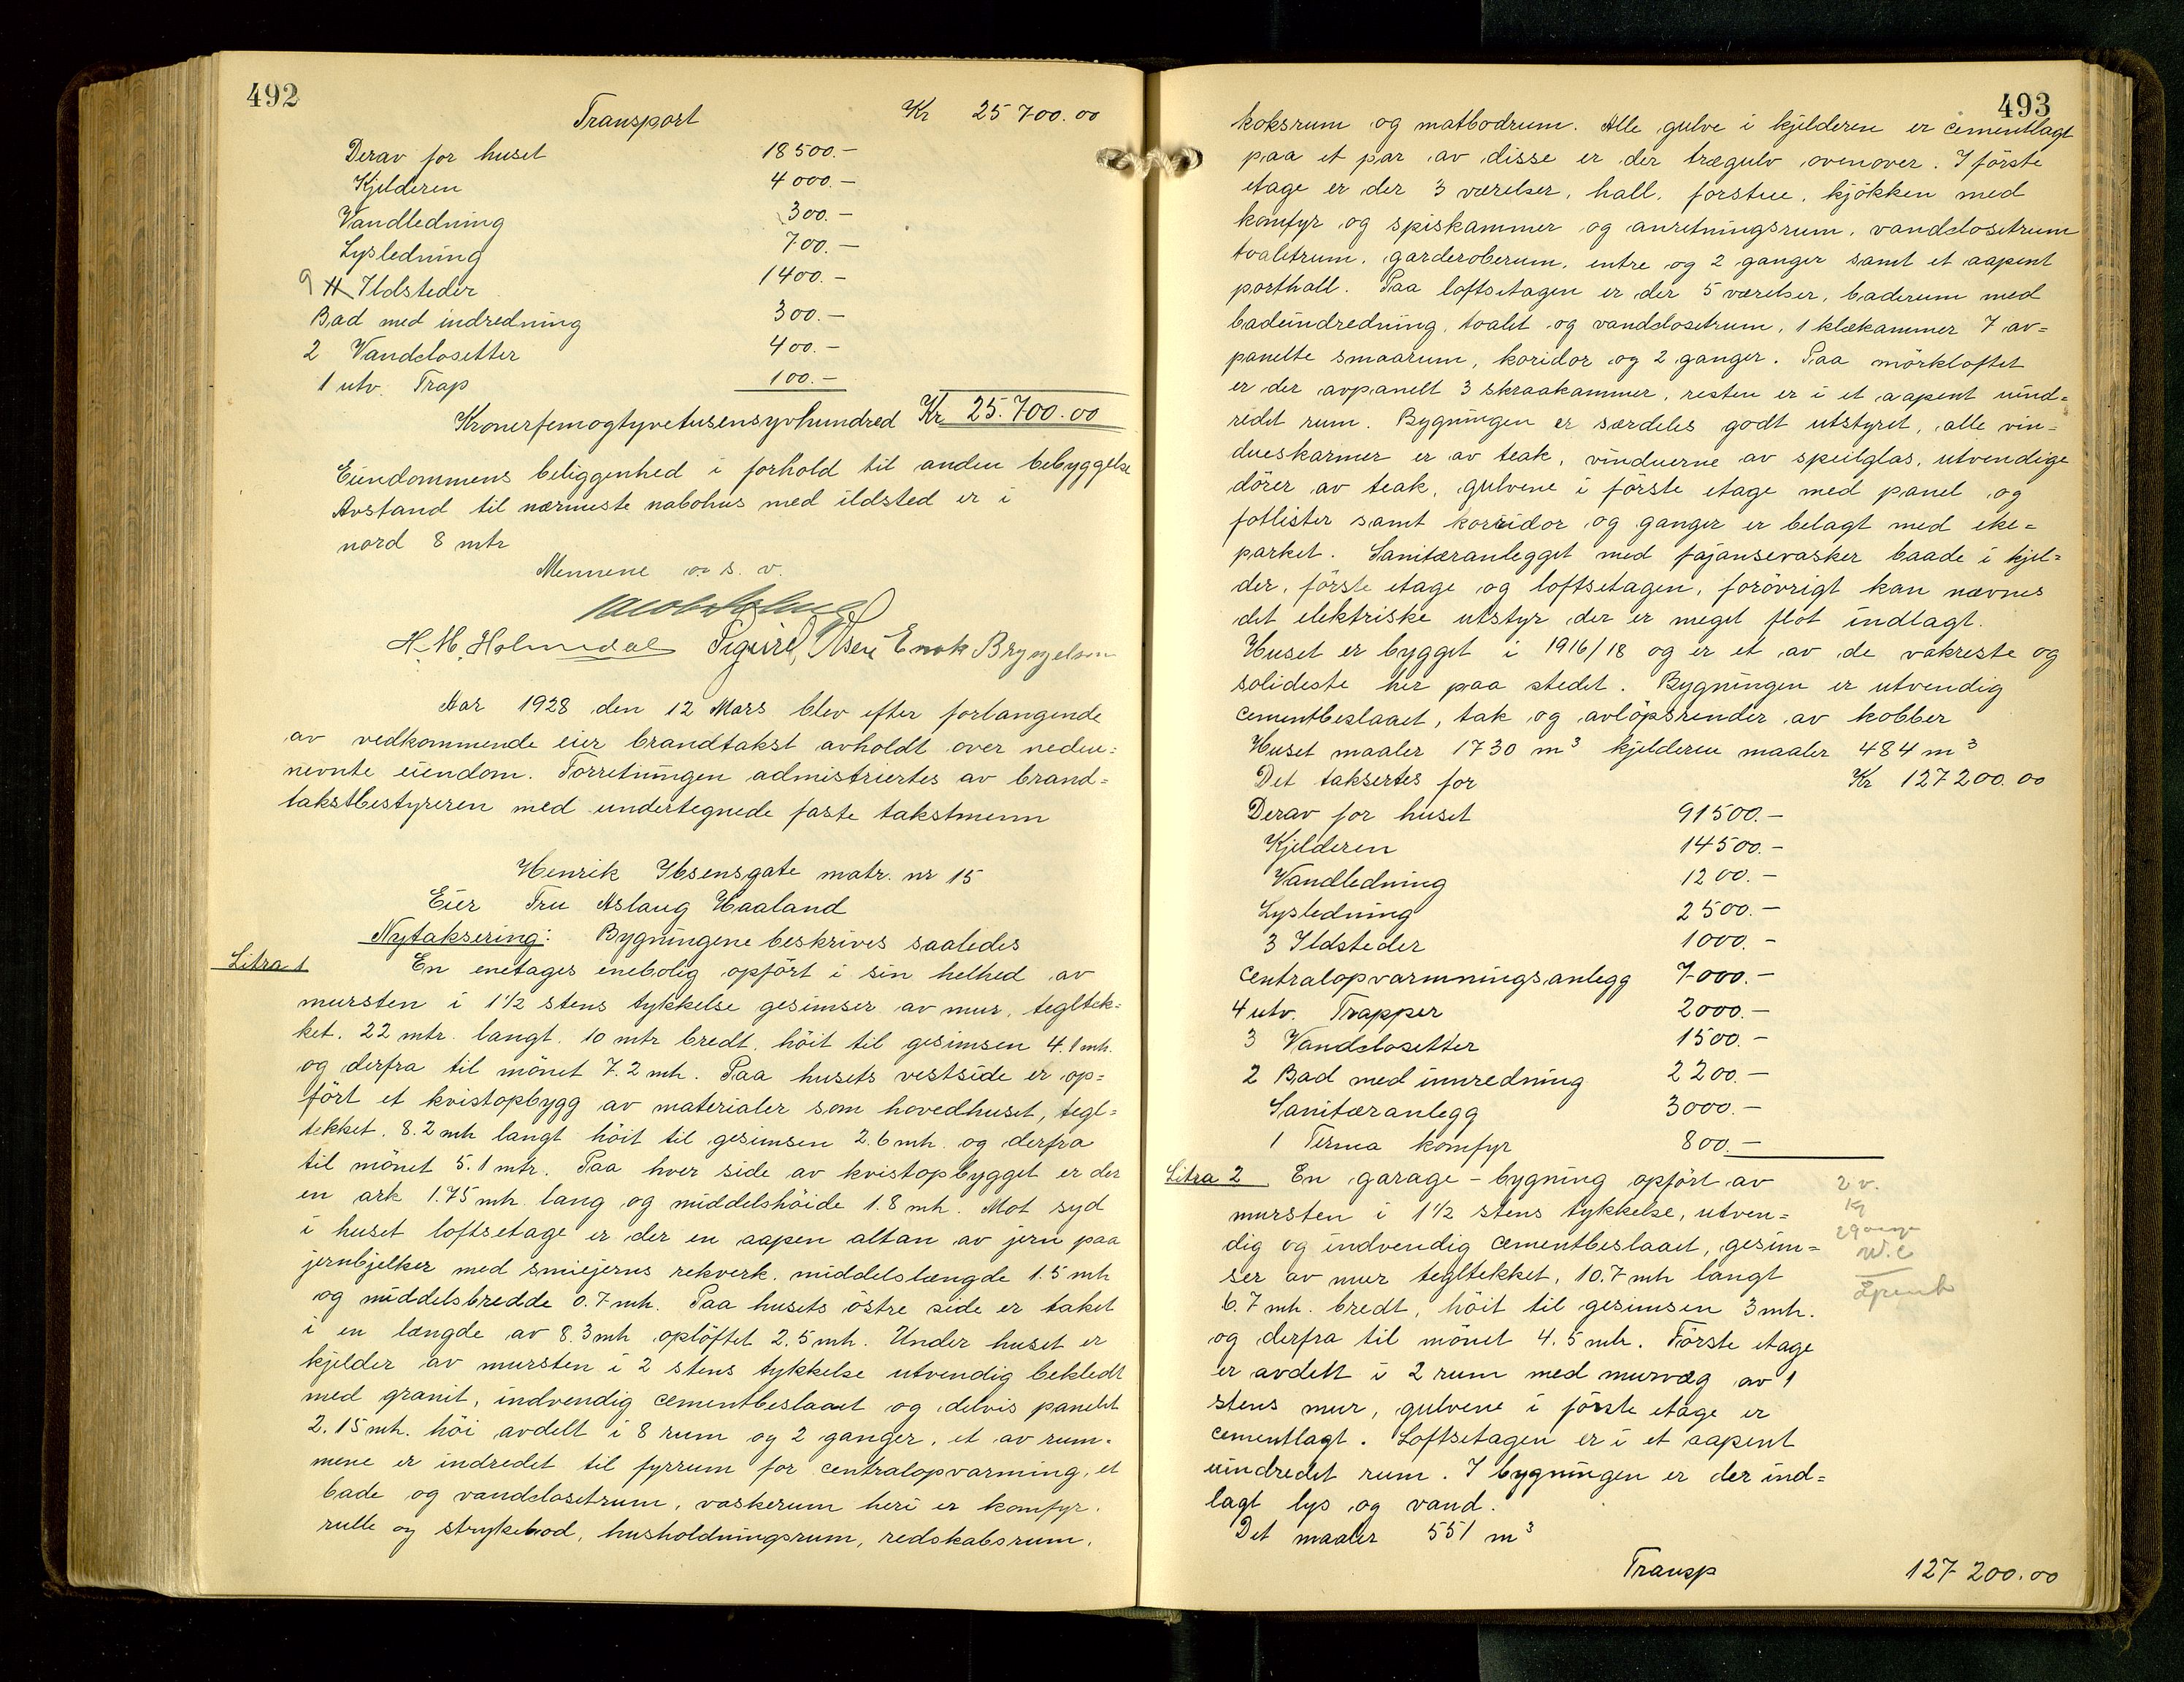 492
Transport Kr 25 700.00
Derav for huset 18500.-
Kjelderen 4000.-
Vandledning 300.-
Lysledning 700.-
9 11 Ildsteder 1400.-
Bad med indredning 300.-
2 Vandclosetter 400.-
1 utv. Trap 100.-
Kronerfemogtyvetusensyvhundred Kr 25.700.00
Eiendommens beliggenhed i forhold til anden bebyggelse
Avstand til nærmeste nabohus med ildsted er i
nord 8 mtr
Mennene o. s. v.
H. M. Holmedal Sigurd Olsen Enok Bryngelsen
Aar 1928 den 12 Mars blev efter forlangende
av vedkommende eier brandtakst avholdt over neden=
nevnte eiendom. Forretningen admistriertes av brand=
takstbestyreren med undertegnede faste takstmenn
Henrik Ibsensgate matr. nr 15
Eier Fru Aslaug Haaland
Nytaksering: Bygningene beskrives saaledes
Litra 1 En enetages enebolig opført i sin helhed av
mursten i 1½ stens tykkelse gesimser av mur, tegltek=
ket. 22 mtr. langt. 10 mtr bredt. höit til gesimsen 4.1 mtr.
og derfra til mönet 7.2 mtr. Paa husets vestside er op=
fört et kvistopbygg av materialer som hovedhuset, tegl=
tekket. 8.2 mtr langt höit til gesimsen 2.6 mtr. og derfra
til mönet 5.1 mtr. Paa hver side av kvistopbygget er der
en ark 1.75 mtr. lang og middelshöide 1.8 mtr. Mot syd
i huset loftsetage er der en aapen altan av jern paa
jernbjelker med smiejerns rekverk. middelslængde 1.5 mtr
og middelsbredde 0.7 mtr. Paa husets östre side er taket
i en længde av 8.3 mtr oplöftet 2.5 mtr. Under huset er
kjelder av mursten i 2 stens tykkelse utvendig bekledt
med granit, indvendig cementbeslaaet og delvis panelet
2.15 mtr. höi avdelt i 8 rum og 2 ganger, et av rum=
mene er indredet til fyrrum for centralopvarming, et
bade og vandclosetrum, vaskerum heri er komfyr.
rulle og strykebod, husholdningsrum, redskabsrum,
493
koksrum og matbodrum. Alle gulve i kjelderen er cementlagt
paa et par av disse er der trægulv ovenover. I förste
etage er der 3 værelser, hall, forstue, kjökken med
komfyr og spiskammer og anretningsrum, vandclosetrum
toaletrum, garderoberum, entre og 2 ganger samt et aapent
porthall. Paa loftsetagen er der 5 værelser, baderum med
badeindredning, toalet og vandclosetrum, 1 klækammer 7 av=
panelte smaarum, koridor og 2 ganger. Paa mörkloftet
er der avpanelt 3 skraakammer, resten er i et aapent uind=
redet rum. Bygningen er særdeles godt utstyret, alle vin=
dueskarmer er av teak, vinduerne av speilglas, utvendige
dörer av teak, gulvene i förste etage med panel og
fotlister samt korridor og ganger er belagt med eke=
parket. Sanitæranlegget med fajansevasker baade i kjel=
der, förste etage og loftsetagen, forövrigt kan nævnes
det elektriske utstyr der er meget flot indlagt.
Huset er bygget i 1916/18 og er et av de vakreste og
solideste her paa stedet. Bygningen er utvendig
cementbeslaaet, tak og avlöpsrender av kobber
Huset maaler 1730 m³ kjelderen maaler 484 m³
Det taksertes for Kr 127200.00
Derav for huset 91500.-
Kjelderen 14500.-
Vandledning 1200.-
Lysledning 2500.-
3 Ildsteder 1000.-
Centralopvarmningsanlegg 7000.-
4 utv. Trapper 2000.-
3 Vandclosetter 1500.-
2 Bad med innredning 2200.-
Sanitæranlegg 3000.-
1 Terma komfyr 800.-
Litra 2 En garage-bygning opfört av
mursten i 1½ stens tykkelse, utven=
dig og indvendig cementbeslaaet, gesim=
ser av mur tegltekket, 10.7 mtr langt
6.7 mtr. bredt, höit til gesimsen 3 mtr.
og derfra til mönet 4.5 mtr. Förste etage
er avdelt i 2 rum med murvæg av 1
stens mur, gulvene i förste etage er
cementlagt. Loftsetagen er i et aapent
uindredet rum. I bygningen er der ind=
lagt lys og vand.
Det maaler 551 m³
2 v.
Kj
W.C
Transp 127200.00